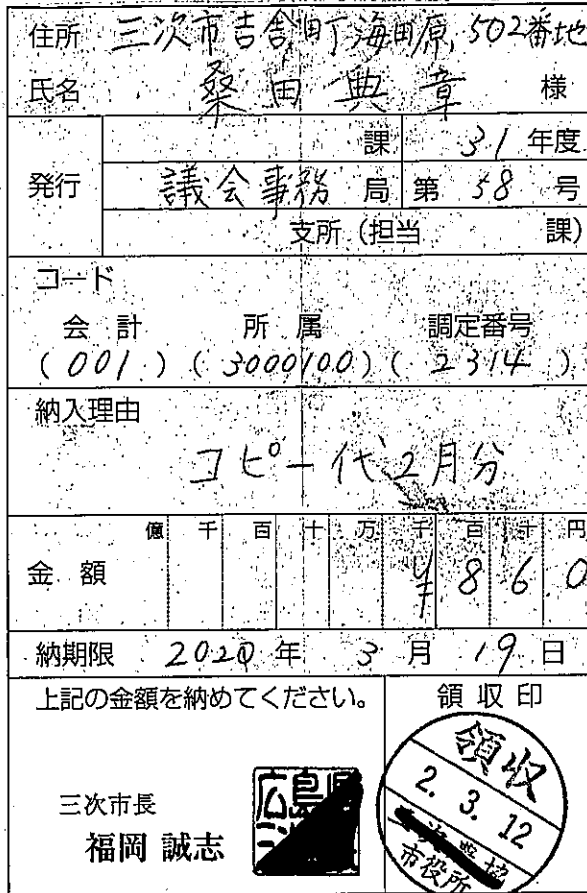 住所 三次市吉舎町海田原502番地
氏名 桑田典章 様
発行
課 31年度
議会事務局 第58号
支所(担当 課)
コード
会計 所属 調定番号
(001)(3000100)(2314)
納入理由
コピー代2月分
億 千 百 十 万 千 百 十 円
金額 ¥860
納期限 2020年3月19日
上記の金額を納めてください。
三次市長
福岡 誠志
領収印
領収
2.3.12
市役所